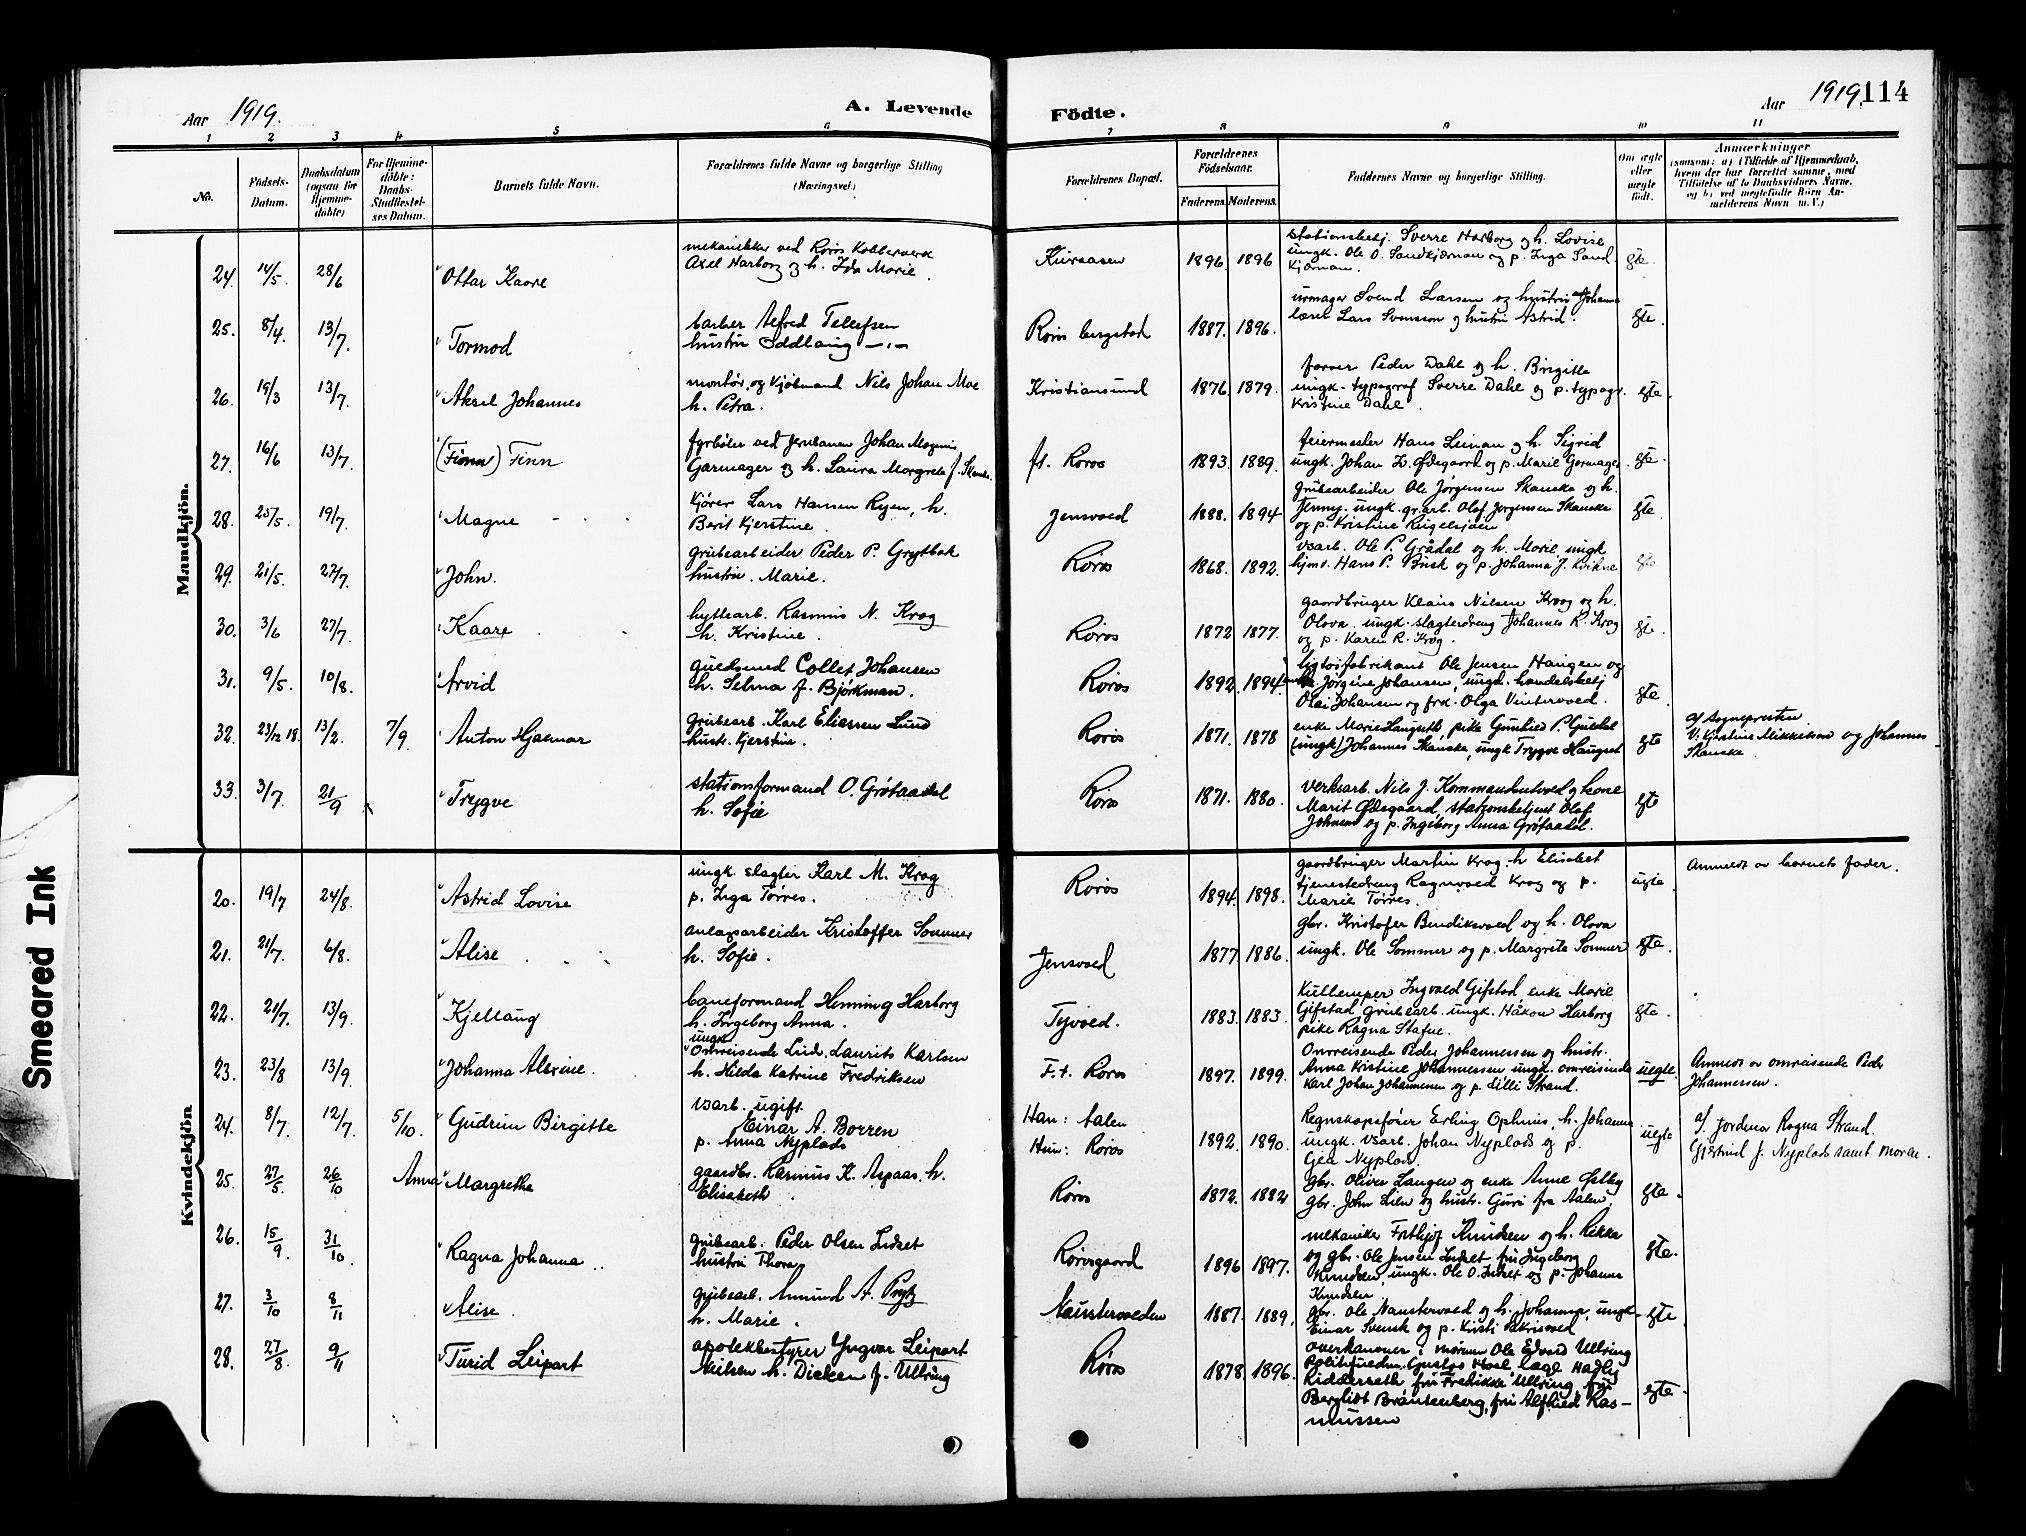 Aar 1919.
A. Levende
Födte.
Aar 1919.
114
1 2 3 4 5 6 7 8 9 10 11
No.
Födsels-
Datum.
Daabsdatum
(ogsaa for
Hjemme-
døbte)
For Hjemme-
döbte:
Daabs-
Stadfæstel-
ses Datum.
Barnets fulde Navn.
Forældrenes fulde Navne og borgerlige Stilling
(Næringsvei.)
Forældrenes Bopæl.
Forældrenes
Födselsaar.
Faderens. Moderens.
Faddernes Navne og borgerlige Stilling.
Om ægte
eller
uægte
födt.
Anmærkninger
(saasom: a) i Tilfælde af Hjemmedaab,
hvem der har forrettet samme, med
Tilföielse af to Daabsvidners Navne,
og b) ved uægtefödte Börn An-
melderens Navn m. V.)
Mandkjön.
24. 14/5. 28/6 Ottar Kaare
mekanikker ved Røros Kobberverk
Axel Harborg og h. Ida Marie.
Kuraasen 1896. 1896
stationsbetj. Sverre Harborg og h. Lovise
ungk. Ole O. Sandkjærnan og p. Inga Sand-
kjærnan.
gte.
25. 8/4. 13/7. Tormod
barber Alfred Tellefsen
hustru Oddlaug
Røros bergstad 1887. 1896.
urmager Svend Larsen og hustru Johanne
lærer Lars Svensson og hustru Astrid.
gte.
26. 19/3 13/7. Aksel Johannes
montør og kjøbmand Nils Johan Moe
h. Petra.
Kristiansund 1876. 1879.
farver Peder Dahl og h. Brigitte
ungk. typograf Sverre Dahl og p. typogr.
Kristine Dahl.
gte.
27. 16/6 13/7. (Finn) Finn
fyrbøter ved jernbanen Johan Magnus
Garmager og h. Laura Margrete f. Skanke.
ft. Røros 1893. 1889.
feiermester Hans Leinan og h. Sigrid
ungk. Johan L. Ødegaard og p. Marie Garmager
gte.
28. 25/5. 19/7. Magne
kjører Lars Hansen Ryen, h.
Berit Kjerstine.
Jensvold 1888. 1894
grubearbeider Ole Jørgensen Skanke og h.
Jenny. ungk. gr.arb. Olof Jørgensen Skanke
og p. Kristine Ringelsjøen
gte.
29. 21/5. 27/7. John.
grubearbeider Peder P. Grytbak
hustru Marie.
Røros 1868. 1892.
vsarb. Ole P. Grådal og h. Marie, ungk.
hjmv. Hans P. Busk og p. Johanna J. Kvikne
gte
30. 3/6 27/7. Kaare
hyttearb. Rasmus N. Krog
h. Kristine.
Røros 1872 1877.
gaardbruger Klaus Nilsen Krog og h.
Olova. ungk. slagterdreng Johannes R. Krog
og p. Karen R. Krog.
gte.
31. 9/5. 10/8. Arvid
guldsmed Collet Johansen
h. Selma f. Björkman.
Røros 1892. 1894
ligtøifabrikant Ole Jensen Haugen og
Jørgine Johansen, ungk. handelsbetj
Olai Johansen og frk. Olga Vintervold.
gte.
32. 23/12 18. 13/2. 7/9. Anton Hjalmar
grubearb. Karl Eliassen Lund
hustr. Kjerstine.
Røros 1871. 1878
enke Marie Haugseth, pike Gunhild P. Guldal
(ungk) Johannes Skanke, ungk Trygve Haugset
gte
af Sognepresten
V: Kjerstine Mikkelsen og Johannes
Skanke.
33. 3/7. 21/9 Trygve
stationsformand O. Grötaadal
h. Sofie
Røros 1871. 1880.
verksarb. Nils J. Kommandantvold og kone
Marit Ødegaard, stationsbetjent Olaf
Johnsen og p. Ingeborg Anna Grötaadal.
gte
Kvindekjön
20. 19/7 24/8. Astrid Lovise
ungk. slagter Karl M. Krog
p. Inga Tørres.
Røros 1894. 1898.
gaardbruger Martin Krog. h Elisabet
tjenestedreng Ragnvald Krog og p.
Marie Tørres.
ugte.
Anmeldt av barnets fader.
21. 21/7. 6/8. Alise
anlægsarbeider Kristoffer Sommer
h. Sofie.
Jensvold 1877. 1886.
gbr. Kristofer Bendiksvold og h. Olova
ungk. Ole Sommer og p. Margrete Sommer
gte.
22. 21/7. 13/9. Kjellaug
baneformand Henning Harborg
h. Ingeborg Anna.
Tyvold. 1883. 1883.
Kullemper Ingvald Gifstad, enke Marie
Gifstad Grubearb. ungk. Håkon Harborg
pike Ragna Stafne.
gte.
23. 23/8 13/9. Johanna Alvine.
ungk.
Omreisende Lud. Laurits Karlsen
h. Hilda Katrine Fredriksen
F.t. Røros 1897. 1899.
Omreisende Peder Johannessen og hustr.
Anna Kristine Johannessen ungd. omreisende
Karl Johan Johannesen og p. Lilli Strand.
uegte.
Anmeldt av omreisende Peder
Johannessen.
24. 8/7. 12/7. 5/10. Gudrun Birgitte
vsarb. ugift
Einar A. Borren
p. Anna Nyplads
Han: Aalen
Hun: Røros
1892. 1890.
Regnskapsfører Erling Ophus, h. Johanne
ungk. vsarb. Johan Nyplads og p.
Gea Nyplads.
uegte
af Jordmor Ragna Strand.
Gjertrud J. Nyplads samt moren.
25. 27/5. 26/10 Anna Margrethe
gaardbr. Rasmus K. Aspaas, h.
Elisabeth.
Røros 1872. 1882
gbr. Oliver Langen og enke Anne Galåy
gbr. John Lien og hustr. Guri fra Aalen.
gte.
26. 15/9. 31/10. Ragna Johanna
grubearb. Peder Olsen Indset
hustru Thora
Rörosgaard 1896 1897.
mekaniker Fritjof Knudsen og h. Rikka
og gbr. Ole Jensen Indset fru Ingeborg
Knudsen, ungk. Ole O. Indset og p. Johanne
Knudsen
gte.
27. 3/10 8/11 Alise.
grubearb. Amund A. Prytz
h. Marie.
Naustervolden 1887. 1889.
gbr. Ole Naustervold og h. Johanne, ungk.
Einar Svensk og p. Kristi
gte.
28. 27/8. 9/11 Turid Leipart
apotekbestyrer Yngvar Leipart
Nielsen h. Dikken f. Ullring
Røros 1878. 1896.
overkanoner i marinen Ole Edvard Ullring
Politifuldm. Gustav Hoel læge Hadly
Ridderseth fru Fredrikke Ullring, fru
Bergljot Brantenberg, fru Alfhild Ras-
mussen
gte.
Smeared Ink